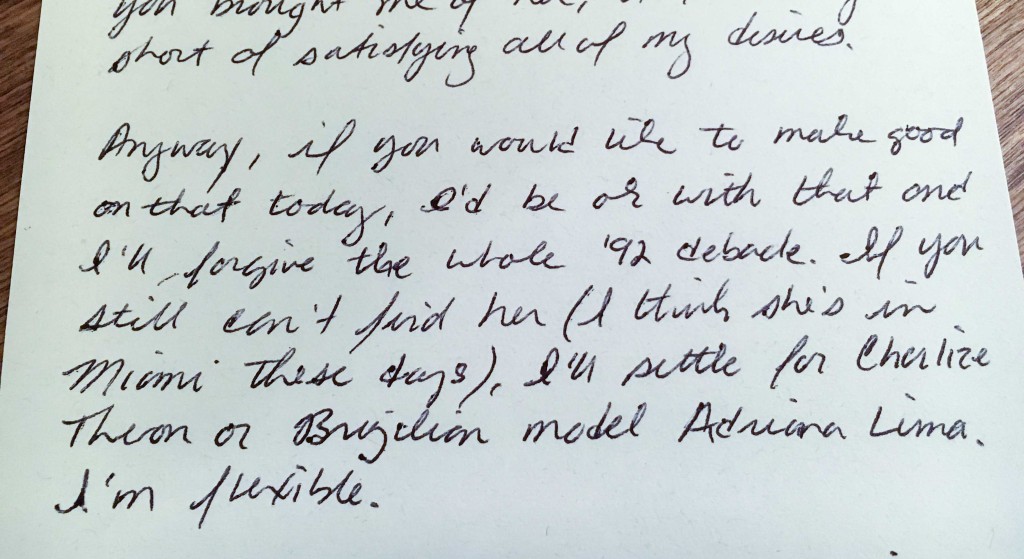 you brought me of her,
short of satisfying all of my desires.
Anyway, if you would like to make good
on that today, I'd be ok with that and
I'll forgive the whole '92 debacle. If you
still can't find her (I think she's in
Miami these days), I'll settle for Charlize
Theron or Brazilian model Adriana Lima.
I'm flexible.